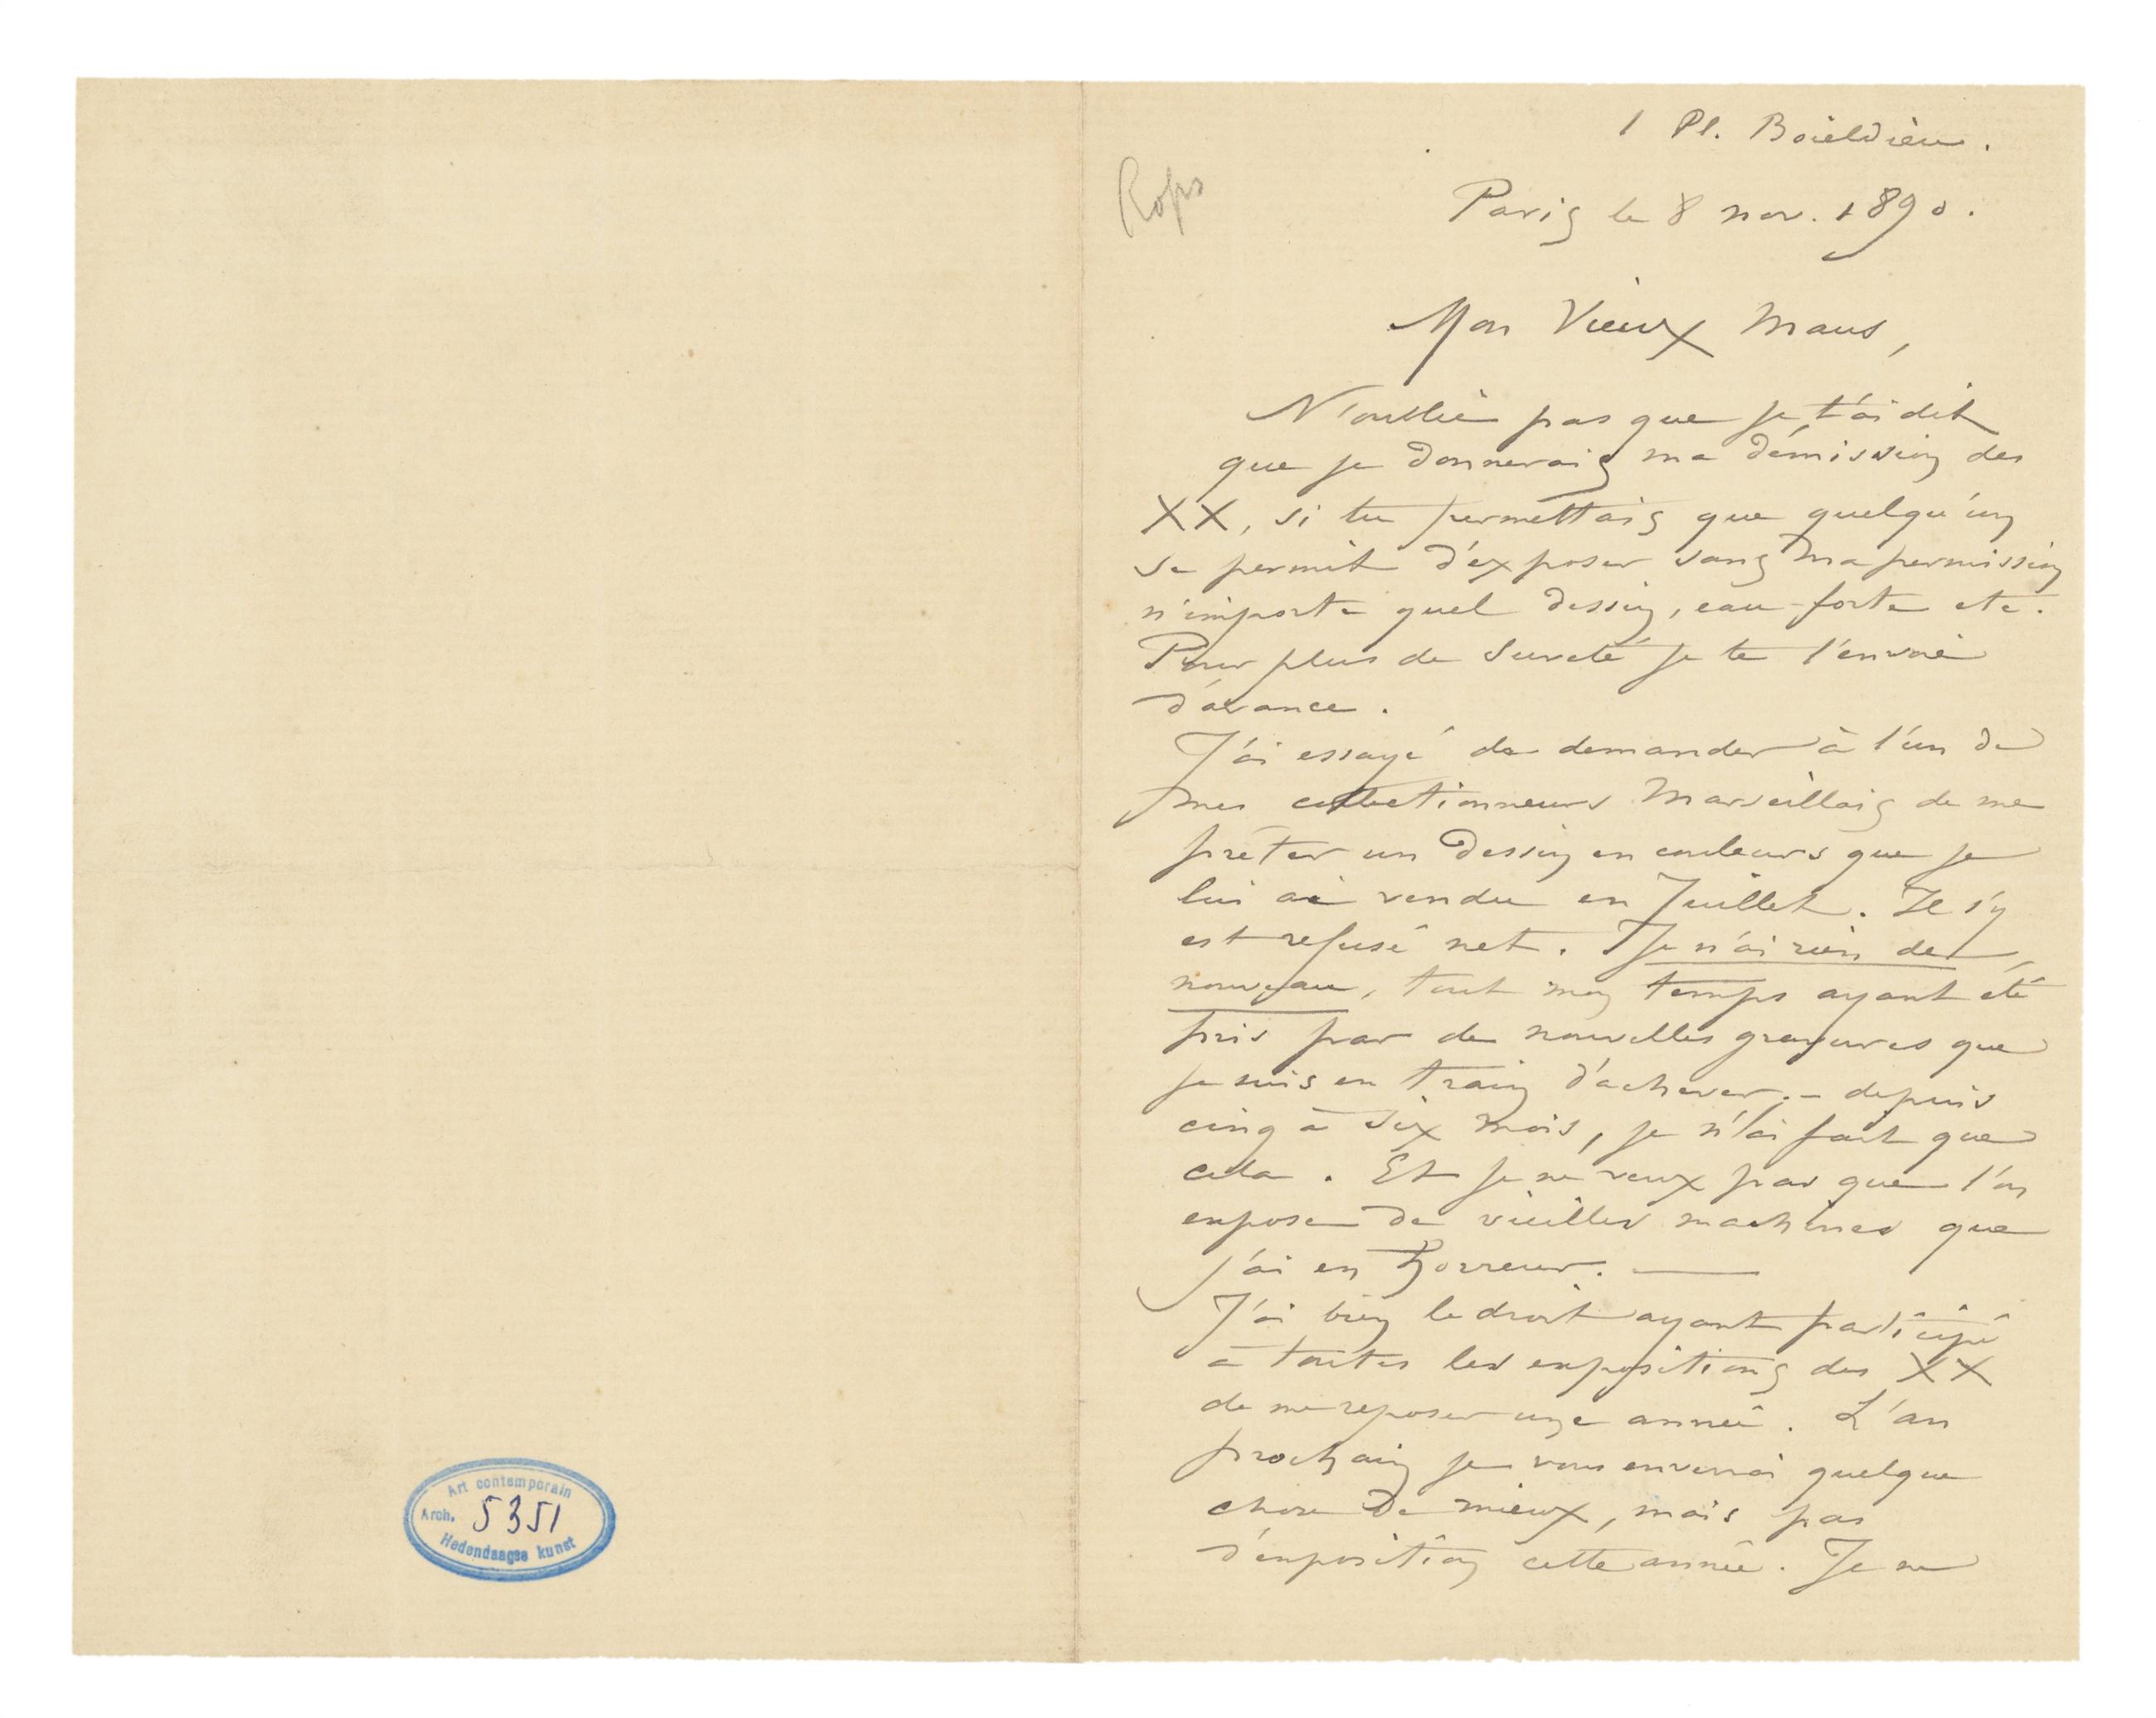 1 Pl. Boïeldieu.
Rops
Paris le 8 nov. 1890.
Mon Vieux Maus,
N'oublie pas que je t'ai dit
que je donnerais ma démission des
XX, si tu permettais que quelqu'un
se permit d'exposer sans ma permission
n'importe quel dessin, eau-forte etc.
Pour plus de sureté je te l'envoie
d'avance.
J'ai essayé de demander à l'un de
mes collectionneurs Marseillais de me
prêter un dessin en couleurs que je
lui ai vendu en Juillet. Il s'y
est refusé net. Je n'ai rien de
nouveau, tout mon temps ayant été
pris par de nouvelles gravures que
je suis en train d'achever. – depuis
cinq à six mois, je n'ai fait que
cela. Et je ne veux pas que l'on
expose de vieilles machines que
j'ai en horreur. —
J'ai bien le droit ayant participé
à toutes les expositions des XX
de me reposer une année. L'an
prochain je vous enverrai quelque
chose de mieux, mais pas
d'exposition cette année. Je ne
Art contemporain
Arch. 5351
Hedendaagse kunst